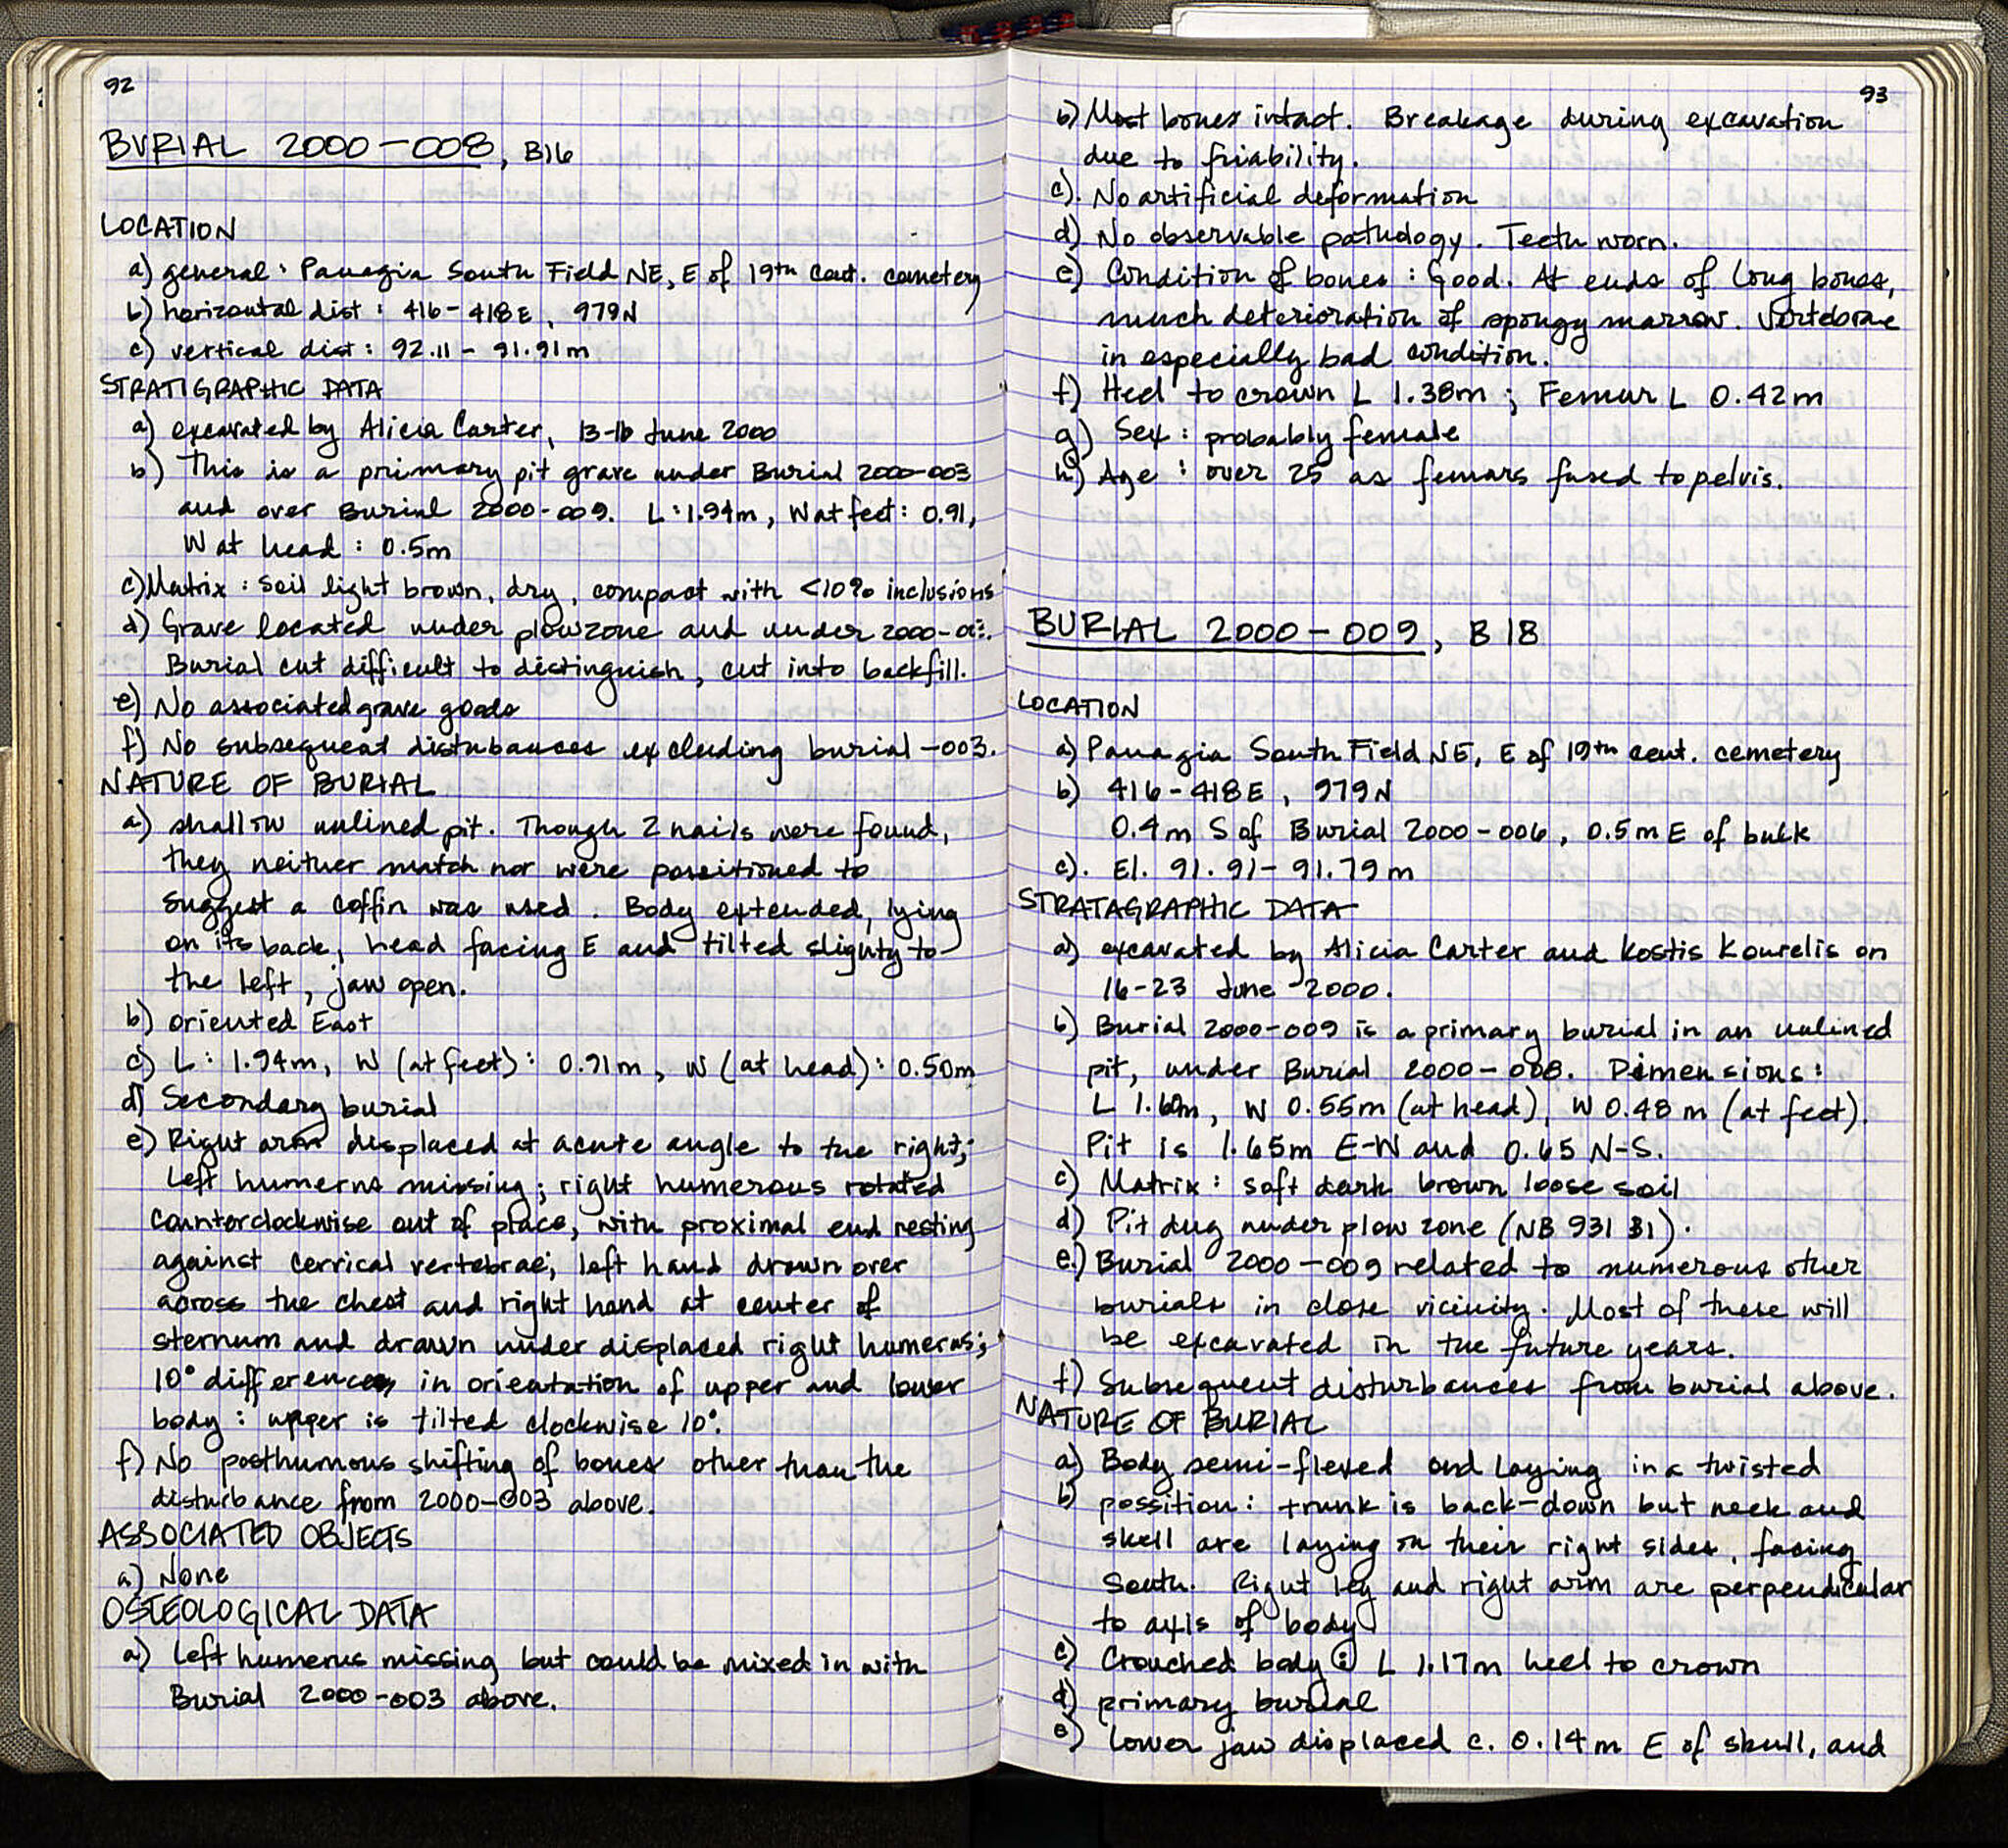 92
BURIAL 2000-008, B16
LOCATION
a) general: Panagia South Field NE, E of 19th cent. cemetery
b) horizontal dist: 416-418E, 979N
c) vertical dist: 92.11-91.91m
STRATIGRAPHIC DATA
a) excavated by Alicia Carter, 13-16 June 2000
b) This is a primary pit grave under Burial 2000-003
and over Burial 2000-009. L: 1.94m, W at feet: 0.91,
W at head: 0.5m
c) Matrix: soil light brown, dry, compact with <10% inclusions
d) Grave located under plowzone and under 2000-003.
Burial cut difficult to distinguish, cut into backfill.
e) No associated grave goods
f) No subsequent distubances excluding burial -003.
NATURE OF BURIAL
a) shallow unlined pit. Though 2 nails were found,
they neither match nor were possitioned to
suggest a coffin was used. Body extended, lying
on its back, head facing E and tilted slighty to
the left, jaw open.
b) oriented East
c) L: 1.94m, W (at feet): 0.91m, W (at head): 0.50m
d) Secondary burial
e) Right arm displaced at acute angle to the right;
left humerus missing; right humerous rotated
counterclockwise out of place, with proximal end resting
against cervical vertebrae; left hand drawn over
across the chest and right hand at center of
sternum and drawn under displaced right humerus;
10° difference in orientation of upper and lower
body: upper is tilted clockwise 10°.
f) No posthumous shifting of bones other than the
disturbance from 2000-003 above.
ASSOCIATED OBJECTS
a) None
OSTEOLOGICAL DATA
a) left humerus missing but could be mixed in with
Burial 2000-003 above.
93
b) Most bones intact. Breakage during excavation
due to friability.
c). No artificial deformation
d) No observable pathology. Teeth worn.
e) Condition of bones: Good. At ends of long bones,
much deterioration of spongy marrow. Vertebrae
in especially bad condition.
f) Heel to crown L 1.38m; Femur L 0.42m
g) Sex: probably female
h) Age: over 25 as femurs fused to pelvis.
BURIAL 2000-009, B18
LOCATION
a) Panagia South Field NE, E of 19th cent. cemetery
b) 416-418E, 979N
0.4m S of Burial 2000-006, 0.5m E of bulk
c). El. 91.91-91.79m
STRATAGRAPHIC DATA
a) excavated by Alicia Carter and Kostis Kourelis on
16-23 June 2000.
b) Burial 2000-009 is a primary burial in an unlined
pit, under Burial 2000-008. Dimensions:
L 1.60m, W 0.55m (at head), W 0.48m (at feet).
Pit is 1.65m E-W and 0.65 N-S.
c) Matrix: soft dark brown loose soil
d) Pit dug under plow zone (NB 931 B1).
e.) Burial 2000-009 related to numerous other
burials in close vicinity. Most of these will
be excavated in the future years.
f) Subsequent disturbances from burial above.
NATURE OF BURIAL
a) Body semi-flexed and laying in a twisted
b) possition: trunk is back-down but neck and
skell are laying on their right sides, facing
South. Right leg and right arm are perpendicular
to axis of body
c) Crouched body L 1.17m heel to crown
d) primary burial
e) lower jaw displaced c. 0.14m E of skull, and